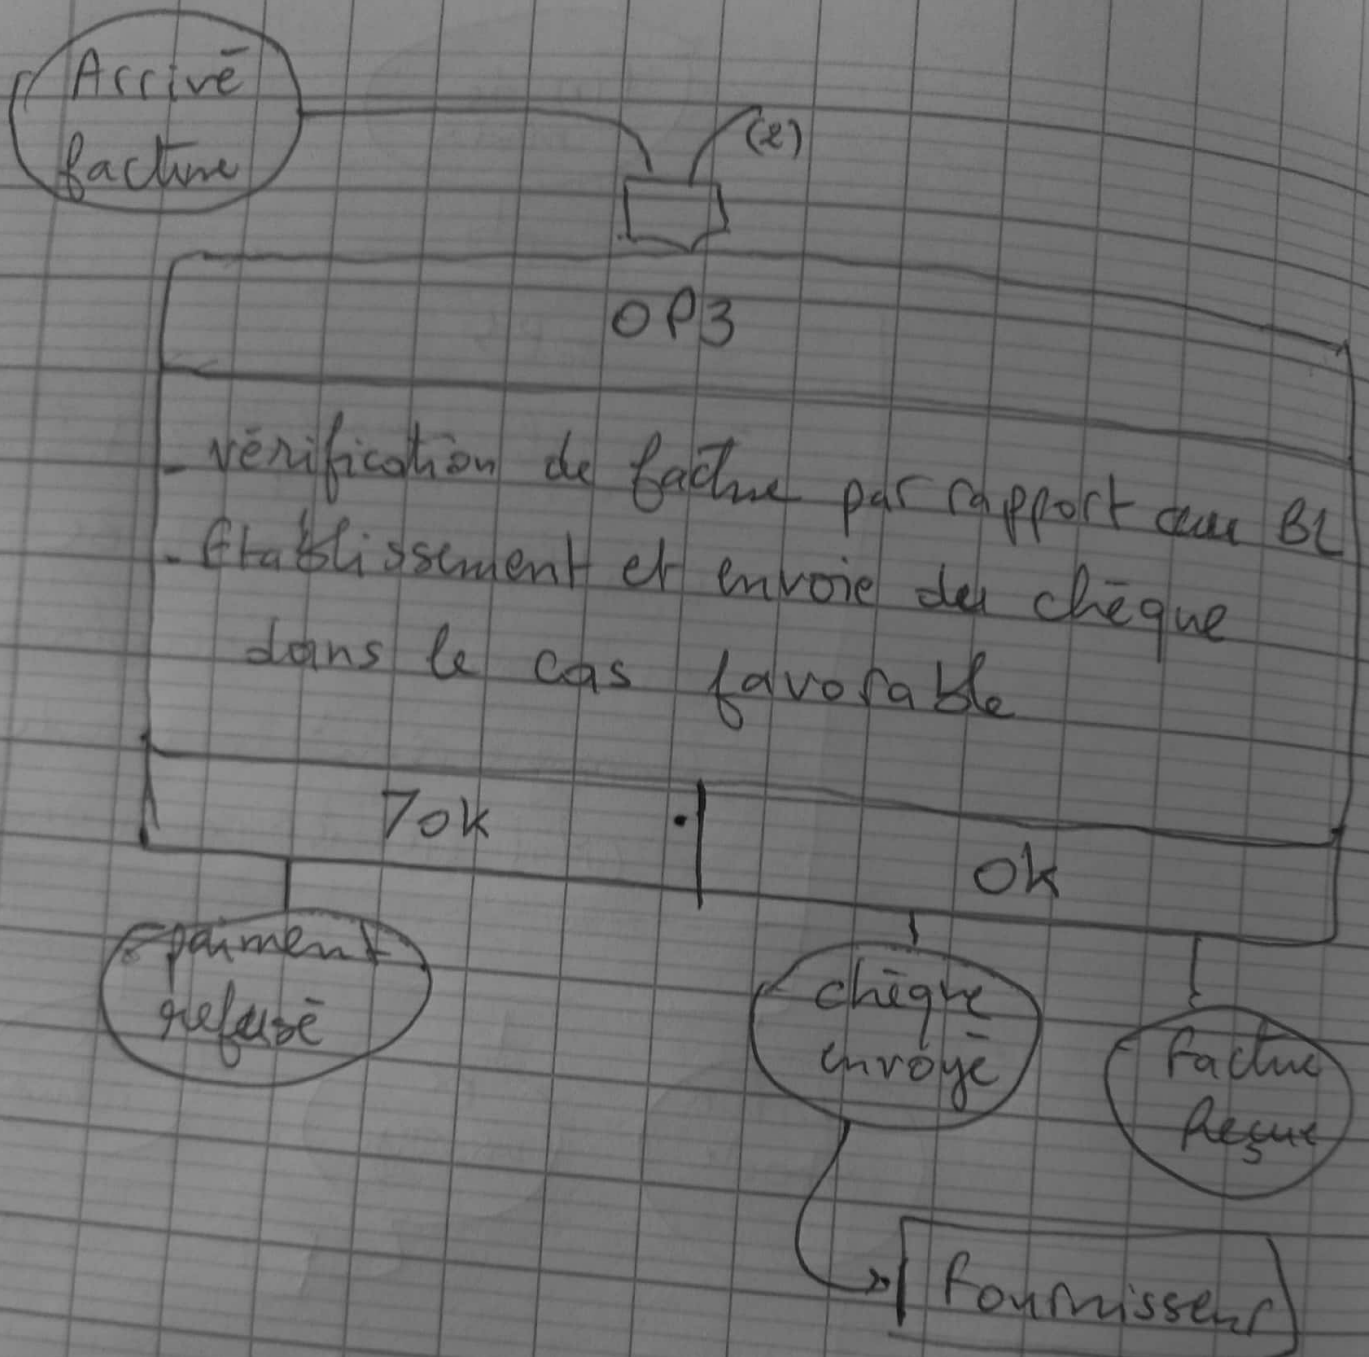 Arrivé
facture
(2)
OP3
- vérification de facture par rapport au BL
- Etablissement et envoie du chèque
dans le cas favorable
7ok
ok
paiment
refusé
chèque
envoyé
facture
Reçue
Fournisseur